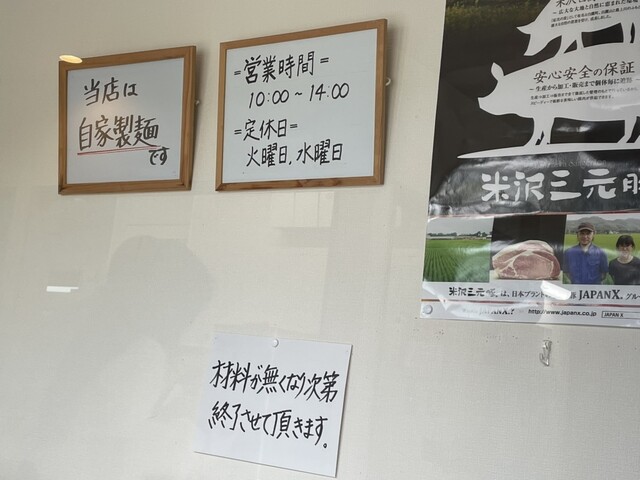 当店は
自家製麺
です
=営業時間=
10:00~14:00
=定休日=
火曜日,水曜日
材料が無くなり次第
終了させて頂きます。
安心安全の保証
米沢三元豚
米沢三元豚は、日本ブランド
JAPAN X
http://www.japanx.co.jp
JAPAN X